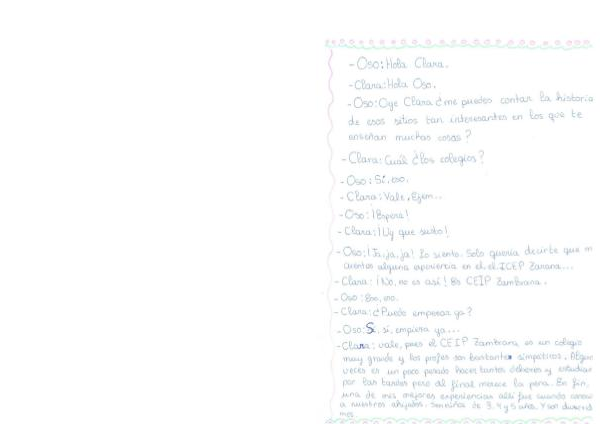 - Oso: Hola Clara.
- Clara: Hola Oso.
- Oso: Oye Clara ¿me puedes contar la historia
de esos sitios tan interesantes en los que te
enseñan muchas cosas?
- Clara: Cual ¿los colegios?
- Oso: Sí, eso.
- Clara: Vale, Ejem...
- Oso: ¡Espera!
- Clara: ¡Uy que susto!
- Oso: ¡Ja, ja, ja! Lo siento. Solo quería decirte que m
cuentes alguna experiencia en el, el ICEP Zanana...
- Clara: ¡No, no es así! Es CEIP Zambrana.
- Oso: Eso, eso.
- Clara: ¿Puedo empezar ya?
- Oso: Sí, sí, empieza ya...
- Clara: vale, pues el CEIP Zambrana es un colegio
muy grande y los profes son bastantes simpáticos. Algun
veces es un poco pesado hacer tantos deberes y estudiar
por las tardes pero al final merece la pena. En fin,
una de mis mejores experiencias allí fue cuando conoc
a nuestros ahijados. Son niños de 3, 4 y 5 años. Y son divertid
mos.